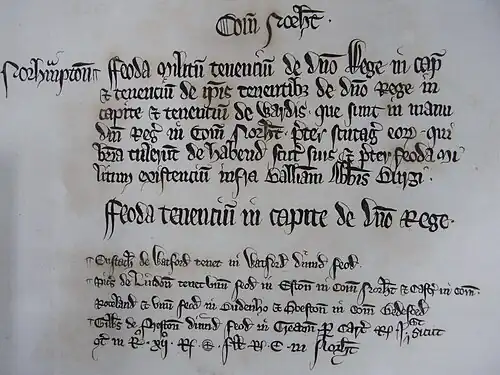 Com̄ Norht̄.
Norhamptōn
Feoda militū tenenciū de dn̄o Rege in cap̄
& tenenciū de ip̄is tenentibȝ de dn̄o Rege in
capite & tenenciū de wardis que sunt in manu
dn̄i Reḡ in Com̄ Norht̄. p̄ter scutaḡ eoꝝ qui
bria tulerūt de habend̄ scut̄ suis & p̄ter feoda mi
litum existenciū infra Balliam Abb̄is Burgi.
Feoda tenenciū in capite de dn̄o Rege.
Eustach̄ de Watford tenet in Watford̄ dimid̄ feod̄.
de Lindon̄ tenet unū feod̄ in Eston̄ in Com̄ Norht̄ & in com̄.
Roteland & unū feod̄ in & in Com̄ Bedeford̄
Gilb̄s de dimid̄ feod̄ in sicut
in